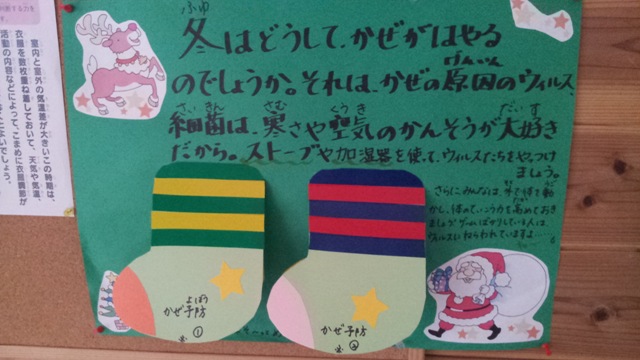 冬はどうして、かぜがはやる
のでしょうか。それは、かぜの原因のウィルス、
細菌は、寒さや空気のかんそうが大好き
だから。ストーブや加湿器を使って、ウィルスたちをやっつけ
ましょう。
さらにみんなは、外で体を動
かし、体のていこう力を高めておき
ましょう。ゲームばかりしている人は、
ウィルスにねらわれていますよ……。
かぜ予防
①
かぜ予防
②
室内と室外の気温差が大きいこの時期は、
衣服を数枚重ね着しておいて、天気や気温、
活動の内容などによって、こまめに衣服調節が